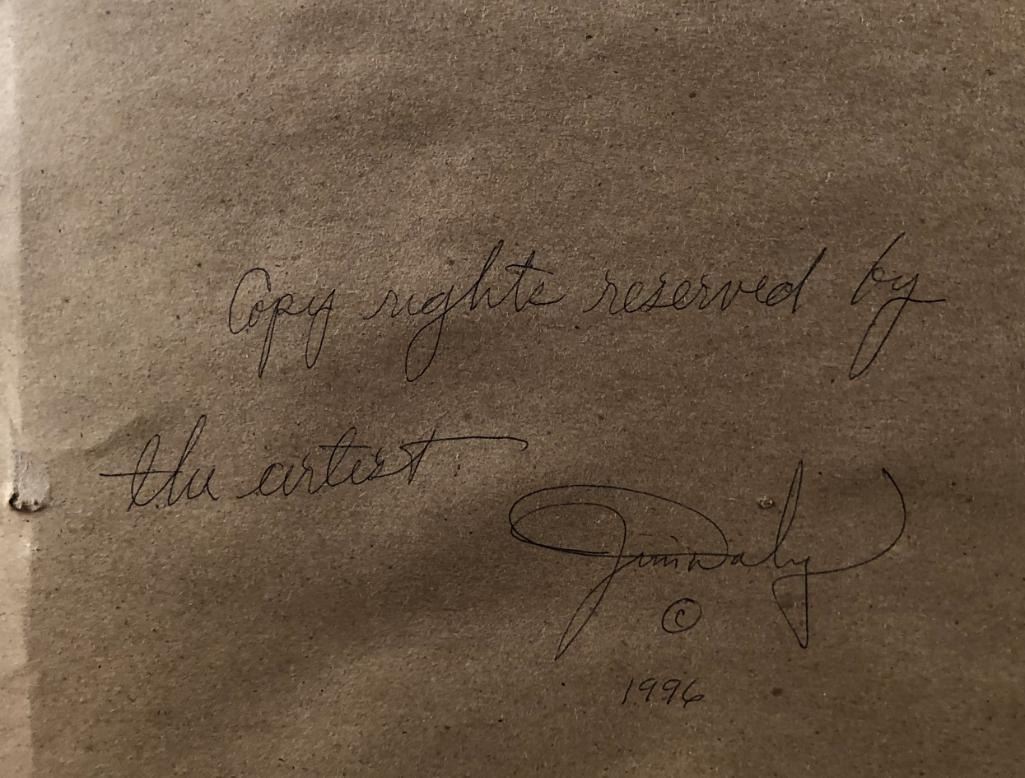 Copy rights reserved by
the artist
Jim Daly
©
1996